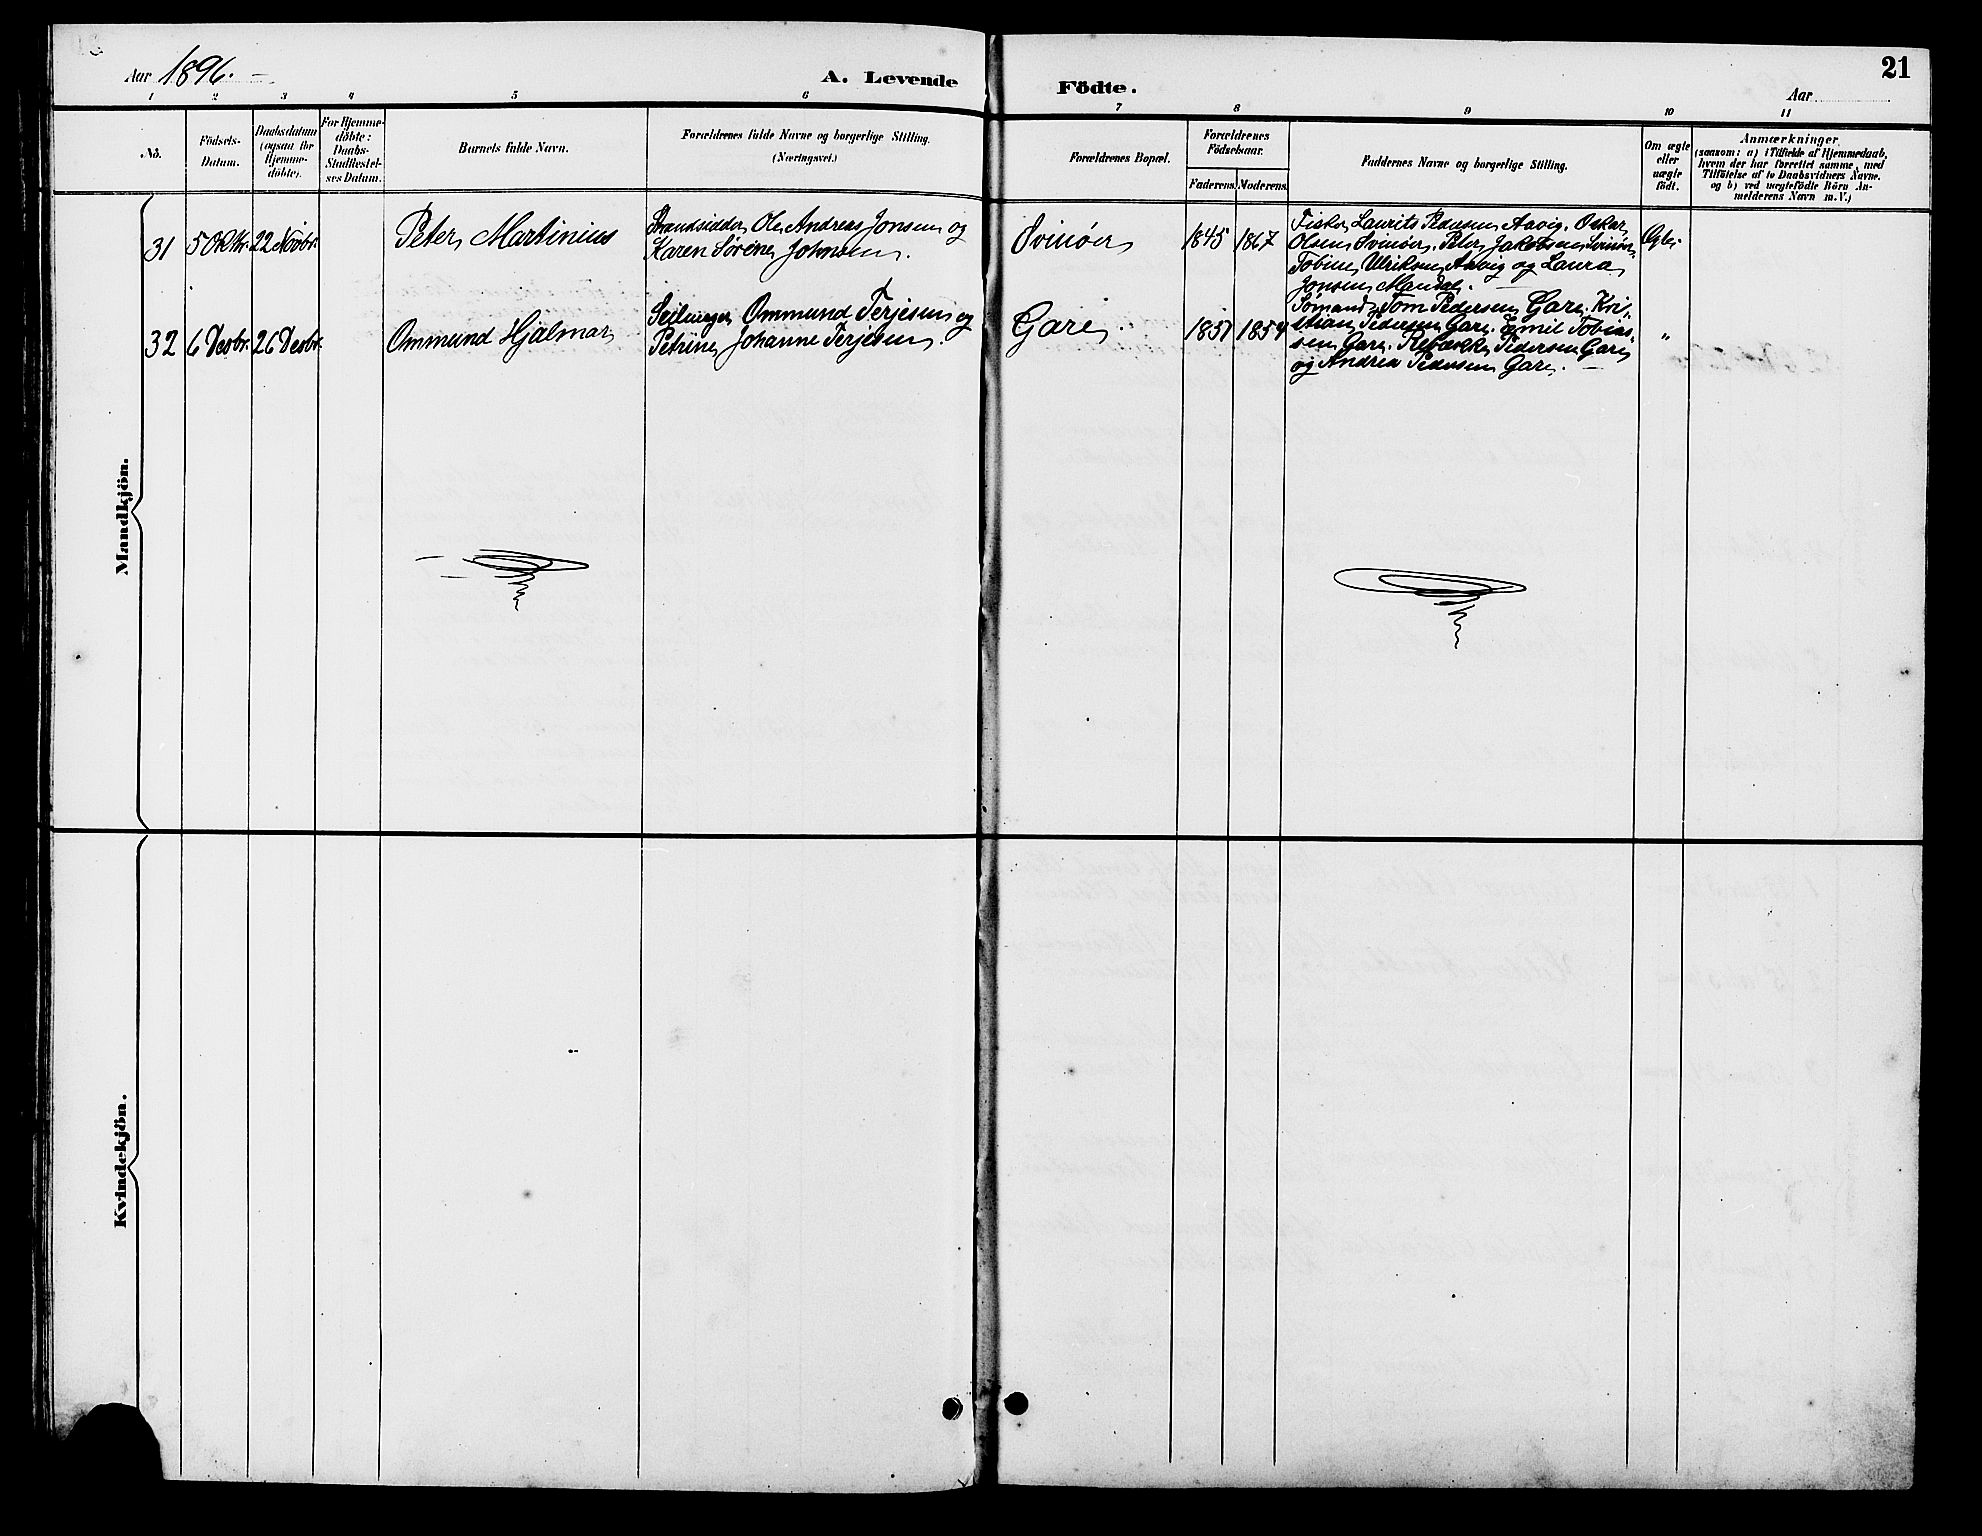 Aar 1896. —
A. Levende
Födte.
21
Aar
1 2 3 4 5 6 7 8 9 10 11
No.
Födsels-
Datum.
Daabsdatum
(ogsaa for
Hjemme-
döbte).
For Hjemme-
döbte:
Daabs-
Stadfæstel-
ses Datum.
Barnets fulde Navn.
Forældrenes fulde Navne og borgerlige Stilling.
(Næringsvei.)
Forældrenes Bopæl.
Forældrenes
Födselsaar.
Faderens. Moderens.
Faddernes Navne og borgerlige Stilling.
Om ægte
eller
uægte
födt.
Anmærkninger
(saasom: a) i Tilfælde af Hjemmedaab,
hvem der har forrettet samme, med
Tilföielse af to Daabsvidners Navne.
og b) ved uægtefödte Börn An-
melderens Navn m.V.)
Mandkjön.
31
5 Oktbr.
22 Novbr.
Peter Martinius
Strandsidder Ole Andreas Jonsen og
Karen Sørene Johnsen.
Svinöer
1845
1867
Fisker Laurits Pedersen Aavig. Oskar
Olsen Svinöer. Peter Jakobsen Svinör.
Tobine Ulriksen Aavig og Laura
Jonsen Mandal. —
Ægte
32
6 Desbr.
26 Desbr.
Ommund Hjalmar
Ommund Terjesen og
Petrine Johanne Terjesen.
Gare
1851
1854
Sømand Tom Pedersen Gare. Kri-
stian Pedersen Gare. Emil Tobias-
sen Gare. Rebækka Pedersen Gare
og Andrea Pedersen Gare. —
"
Kvindekjön.